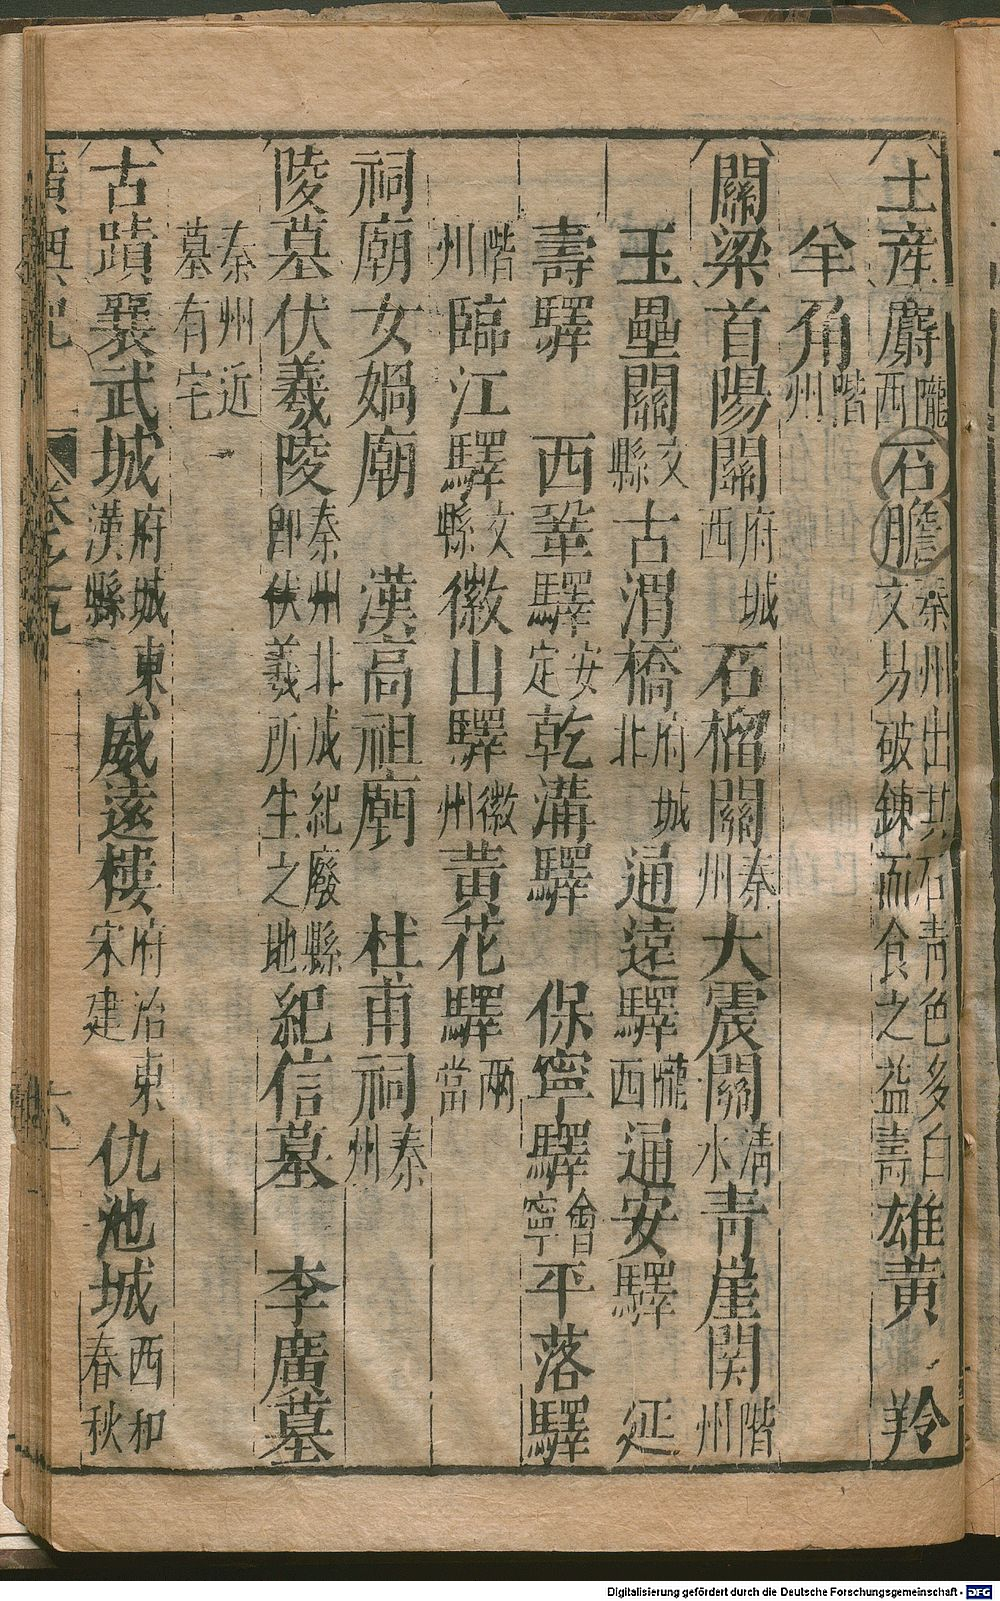 土産麝隴西石膽秦州出其石青色多白文易破錬而食之益壽雄黃 羚
羊角階州
關梁首陽關府城西石榴關秦州大震關清水青崖関階州
玉壘關文縣古渭橋府城北通遠驛隴西通安驛 延
壽驛 西鞏驛安定乾溝驛 保寧驛會寧平落驛
階州臨江驛文縣徽山驛徽州黃花驛兩當
祠廟女媧廟 漢高祖廟 杜甫祠秦州
陵墓伏羲陵秦州北成紀廢縣即伏羲所生之地紀信墓 李廣墓
秦州近墓有宅
古蹟襄武城府城東漢縣威遠樓府治東宋建仇池城西和春秋
廣輿記 卷之九 六
Digitalisierung gefördert durch die Deutsche Forschungsgemeinschaft - DFG